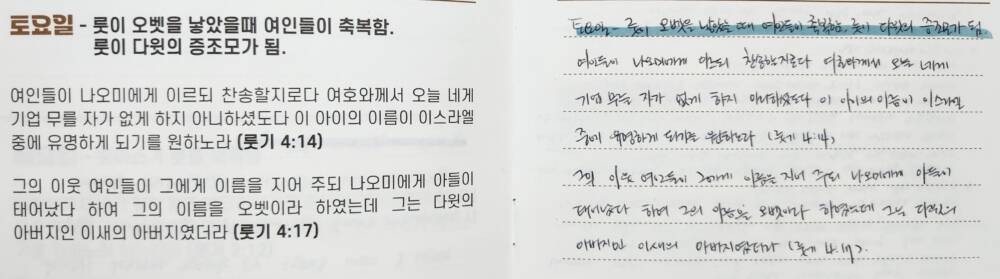 토요일 - 룻이 오벳을 낳았을때 여인들이 축복함.
룻이 다윗의 증조모가 됨.
여인들이 나오미에게 이르되 찬송할지로다 여호와께서 오늘 네게
기업 무를 자가 없게 하지 아니하셨도다 이 아이의 이름이 이스라엘
중에 유명하게 되기를 원하노라 (룻기 4:14)
그의 이웃 여인들이 그에게 이름을 지어 주되 나오미에게 아들이
태어났다 하여 그의 이름을 오벳이라 하였는데 그는 다윗의
아버지인 이새의 아버지였더라 (룻기 4:17)
토요일 - 룻이 오벳을 낳았을 때 여인들이 축복함. 룻이 다윗의 증조모가 됨
여인들이 나오미에게 이르되 찬송할지로다 여호와께서 오늘 네게
기업 무를 자가 없게 하지 아니하셨도다 이 아이의 이름이 이스라엘
중에 유명하게 되기를 원하노라 (룻기 4:14)
그의 이웃 여인들이 그에게 이름을 지어 주되 나오미에게 아들이
태어났다 하여 그의 이름을 오벳이라 하였는데 그는 다윗의
아버지인 이새의 아버지였더라 (룻기 4:17).